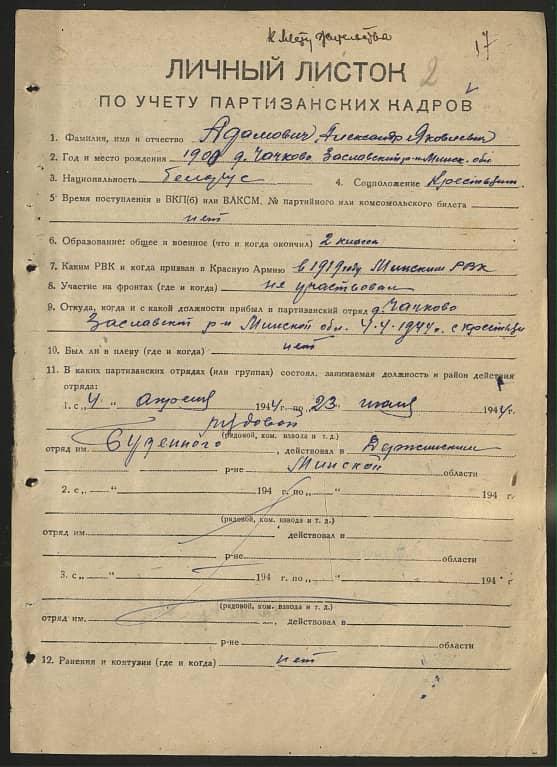 к месту жительства
17
ЛИЧНЫЙ ЛИСТОК 2
ПО УЧЕТУ ПАРТИЗАНСКИХ КАДРОВ
1. Фамилия, имя и отчество Адамович Александр Яковлевич
2. Год и место рождения 1900 д. Чачково Заславский р-н Минск. обл
3. Национальность белорус 4. Соцположение Крестьянин
5. Время поступления в ВКП(б) или ВЛКСМ, № партийного или комсомольского билета
нет
6. Образование: общее и военное (что и когда окончил) 2 класса
7. Каким РВК и когда призван в Красную Армию в 1919 году Минским РВК
8. Участие на фронтах (где и когда) не участвовал
9. Откуда, когда и с какой должности прибыл в партизанский отряд д. Чачково
Заславский р-н Минской обл. 4.4.1944г. с
10. Был ли в плену (где и когда) нет
11. В каких партизанских отрядах (или группах) состоял, занимаемая должность и район действия
отряда:
1. с „4“ апреля 1944 г. по „23“ июля 1944 г.
рядовой
(рядовой, ком. взвода и т. д.)
отряд им. Буденного, действовал в Дзержинском
р-не Минской области
2. с „ “ 194 г. по „ “ 194 г.
(рядовой, ком. взвода и т. д.)
отряд им. действовал в
р-не области
3. с „ “ 194 г. по „ “ 194 г.
(рядовой, ком. взвода и т. д.)
отряд им. , действовал в
р-не области
12. Ранения и контузии (где и когда) нет